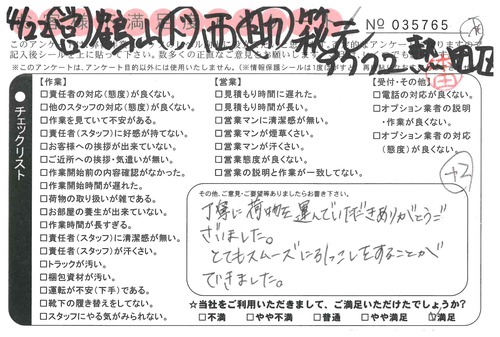 4/2 (営)鶴山(ド)西(助)
No 035765
チェックリスト
【作業】
□責任者の対応(態度)が良くない。
□他のスタッフの対応(態度)が良くない。
□作業を見ていて不安がある。
□責任者(スタッフ)に好感が持てない。
□お客様への挨拶が出来ていない。
□ご近所への挨拶・気遣いが無い。
□作業開始前の内容確認がなかった。
□作業開始時間が遅れた。
□荷物の取り扱いが雑である。
□お部屋の養生が出来ていない。
□作業時間が長すぎる。
□責任者(スタッフ)に清潔感が無い。
□責任者(スタッフ)が汗くさい。
□トラックが汚い。
□梱包資材が汚い。
□運転が不安(下手)である。
□靴下の履き替えをしてない。
□スタッフにやる気がみられない。
【営業】
□見積もり時間に遅れた。
□見積もり時間が長い。
□営業マンに清潔感が無い。
□営業マンが煙草くさい。
□営業マンが汗くさい。
□営業態度が良くない。
□営業の説明と作業が一致してない。
【受付・その他】
□電話の対応が良くない。
□オプション業者の説明
・作業が良くない。
□オプション業者の対応
(態度)が良くない。
+2
その他、ご意見・ご要望等ありましたらお書き下さい。
丁寧に荷物を運んでいただきありがとうご
ざいました。
とてもスムーズに引っこしをすることが
できました。
☆当社をご利用いただきまして、ご満足いただけたでしょうか?
□不満 □やや不満 □普通 □やや満足 ☑満足